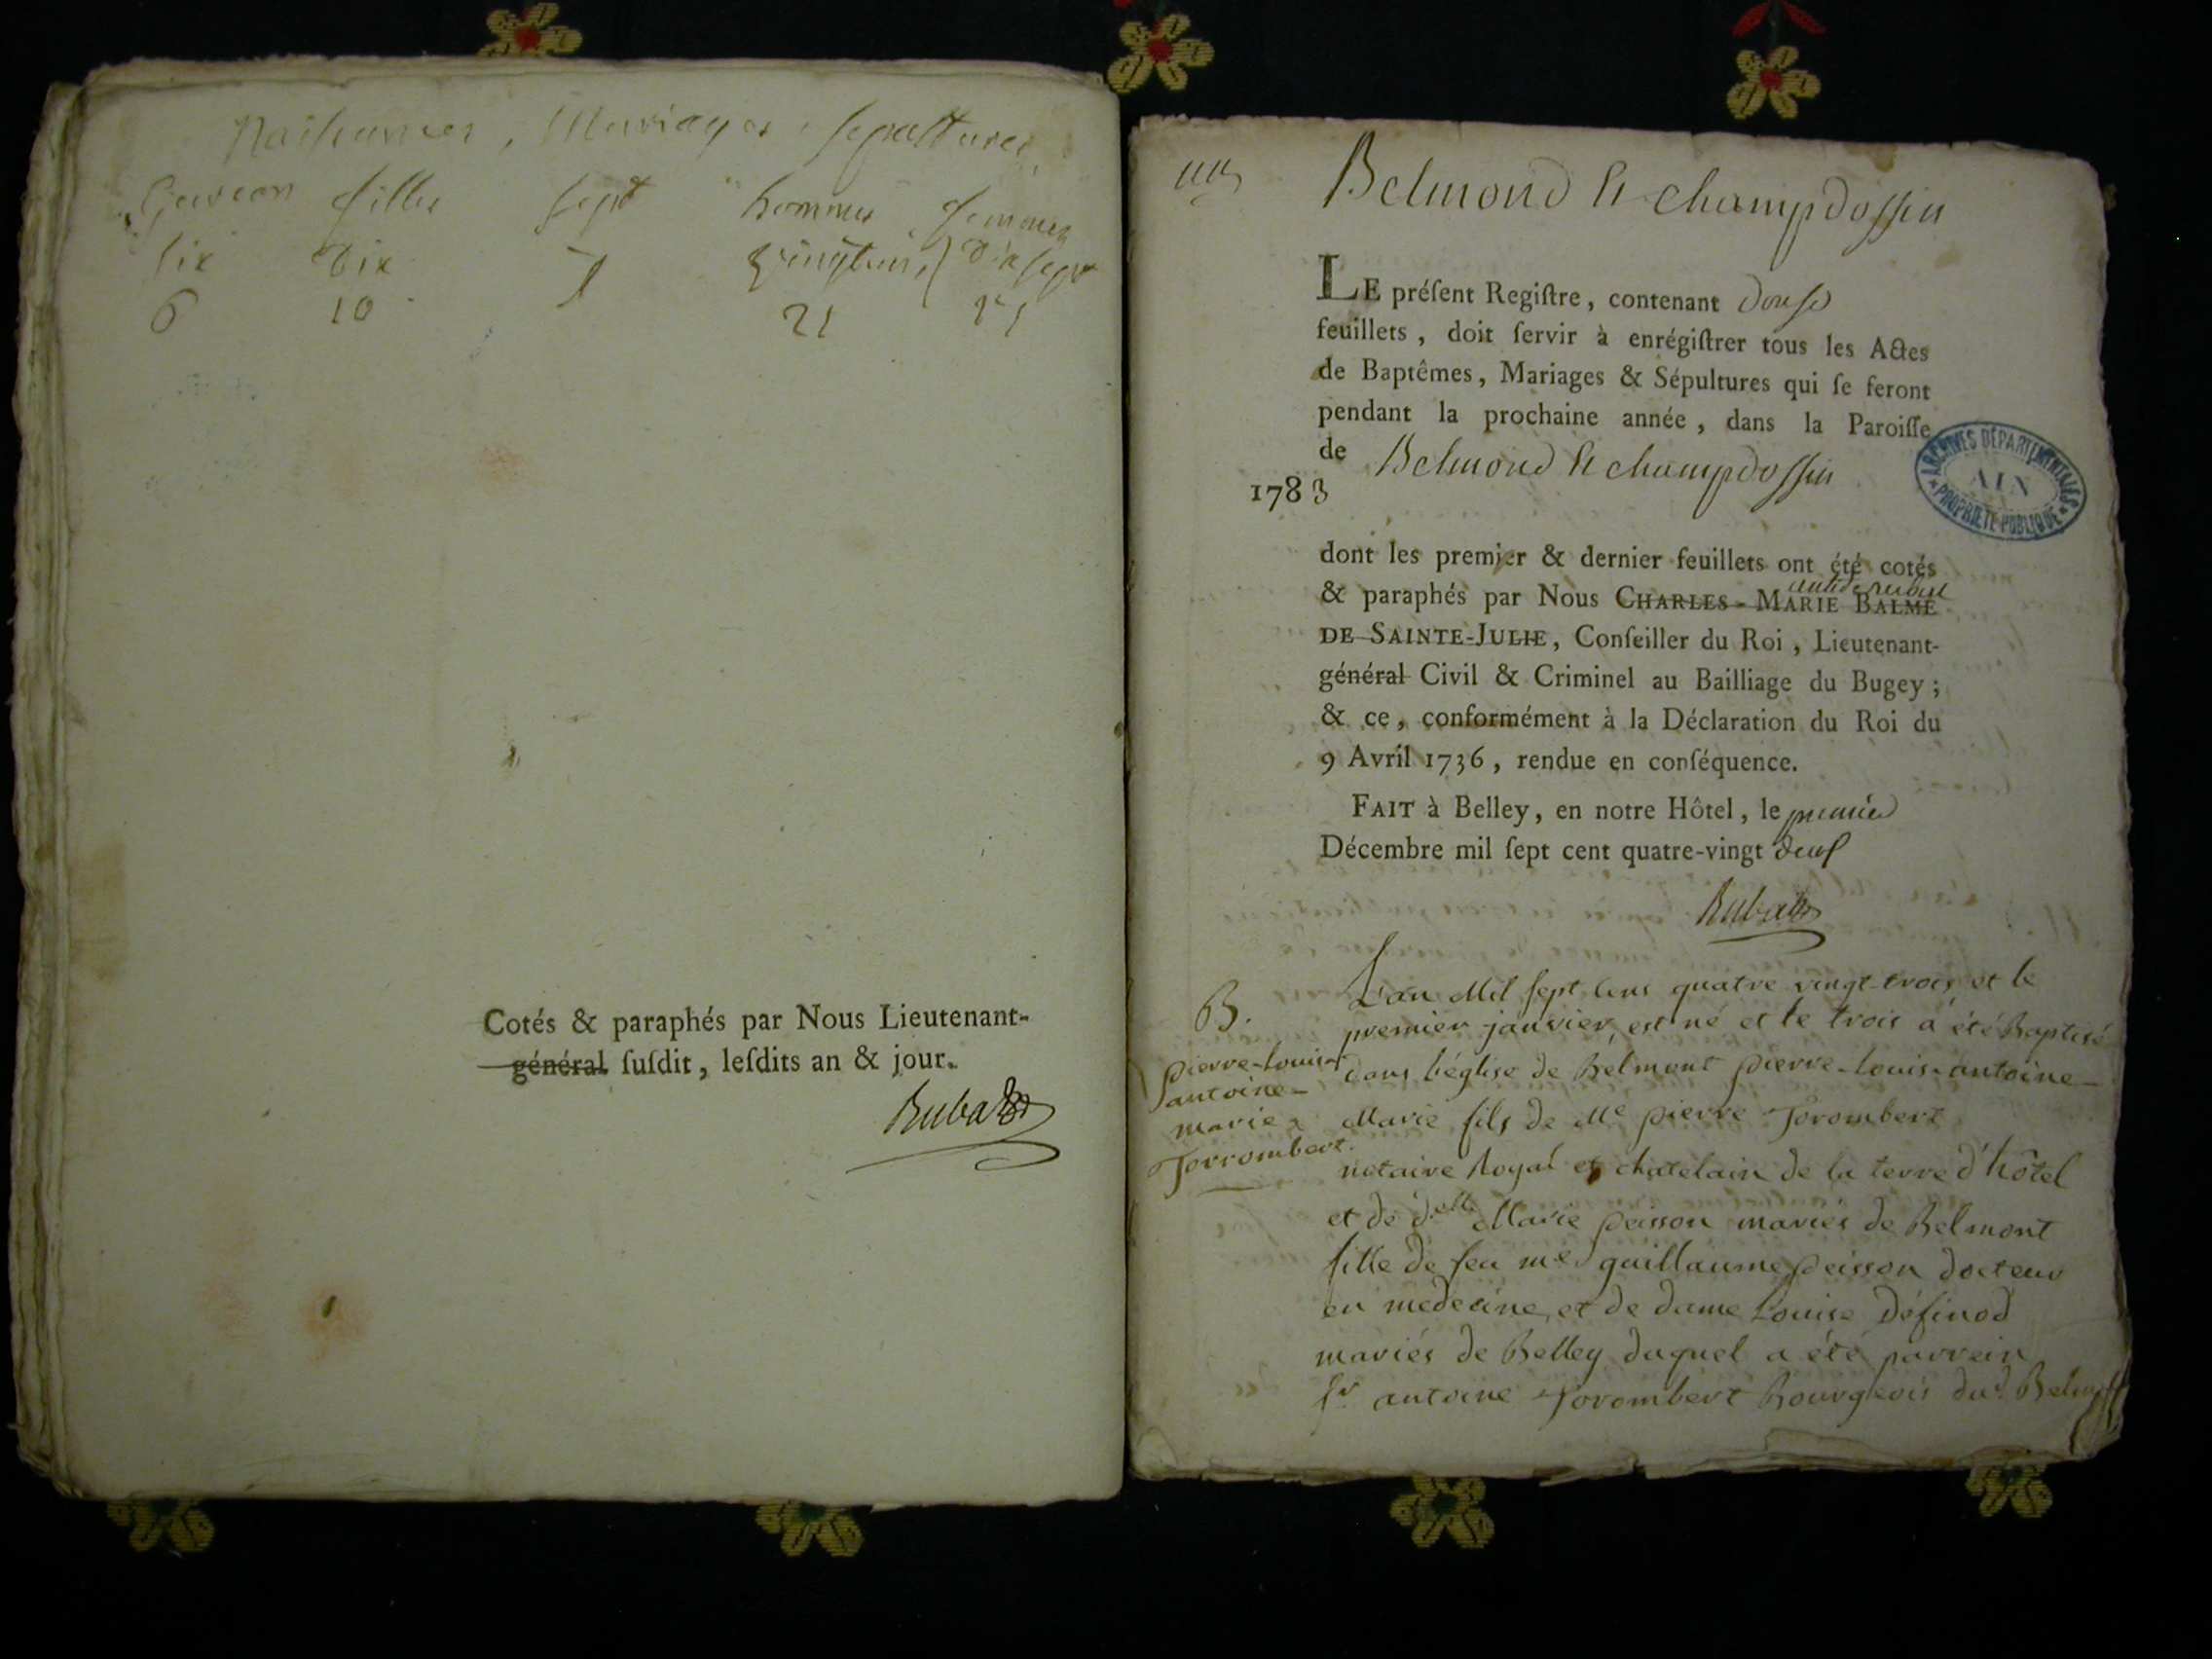 Naissances, Mariages, sepultures
Garcon filles sept hommes femmes
six dix 7 vingtun dix sept
6 10 21 17
Cotés & paraphés par Nous Lieutenant-
général ſuſdit, leſdits an & jour.
Rubat
Belmond & champdossin
LE préſent Regiſtre, contenant douse
feuillets, doit ſervir à enrégiſtrer tous les Actes
de Baptêmes, Mariages & Sépultures qui ſe feront
pendant la prochaine année, dans la Paroiſſe
de Belmond & champdossin
1783
ARCHIVES DÉPARTEMENTALES
AIN
PROPRIÉTÉ PUBLIQUE
dont les premier & dernier feuillets ont été cotés
& paraphés par Nous CHARLES-MARIE BALME
DE SAINTE-JULIE, Conſeiller du Roi, Lieutenant-
général Civil & Criminel au Bailliage du Bugey;
& ce, conformément à la Déclaration du Roi du
9 Avril 1736, rendue en conſéquence.
FAIT à Belley, en notre Hôtel, le premier
Décembre mil ſept cent quatre-vingt deux
Rubat
B.
pierre-louis
antoine-
marie
Jorrombert.
L'an Mil sept cens quatre vingt-trois et le
premier janvier est né et le trois a été Baptisé
dans l'église de Belmont pierre-louis-antoine-
Marie fils de Me pierre Jorombert
notaire Royal et chatelain de la terre d'hôtel
et de d.elle Marie peisson mariés de Belmont
fille de feu me guillaume peisson docteur
en medecine et de dame Louise Définod
mariés de Belley duquel a été parrein
sr antoine Jorombert Bourgeois dud. Belmont